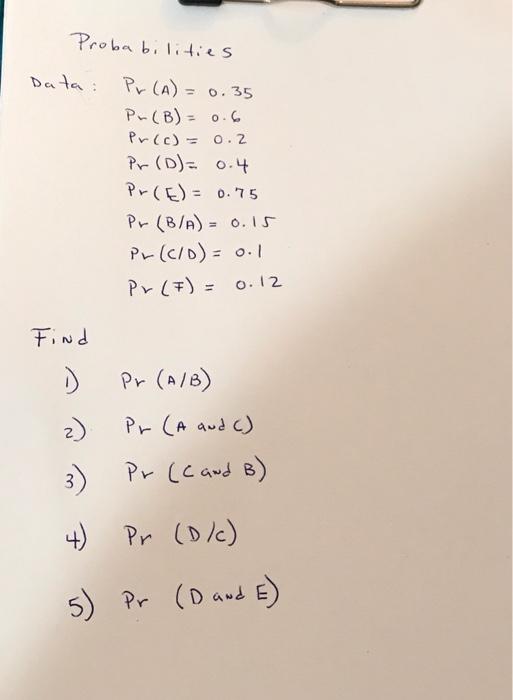 Probabilities
Data: Pr(A) = 0.35
Pr(B) = 0.6
Pr(C) = 0.2
Pr(D) = 0.4
Pr(E) = 0.75
Pr(B/A) = 0.15
Pr(C/D) = 0.1
Pr(F) = 0.12
Find
1) Pr(A/B)
2) Pr(A and C)
3) Pr(C and B)
4) Pr (D/C)
5) Pr (D and E)